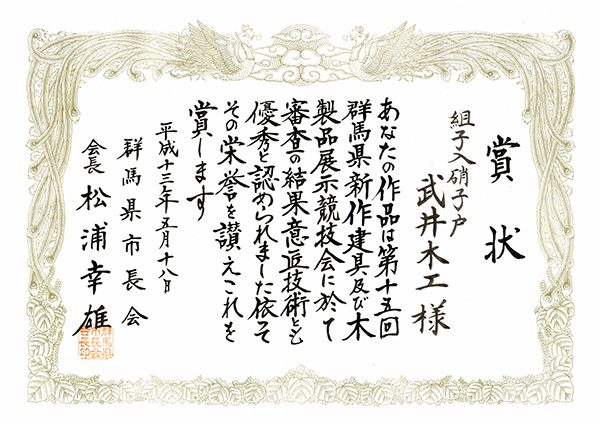 賞状
組子入硝子戸
武井木工様
あなたの作品は第十五回
群馬県新作建具及び木
製品展示競技会に於て
審査の結果意匠技術とも
優秀と認められました依そ
その栄誉を讃えこれを
賞します
平成十三年五月十八日
群馬県市長会
会長 松浦幸雄
群馬県
市長会
会長印